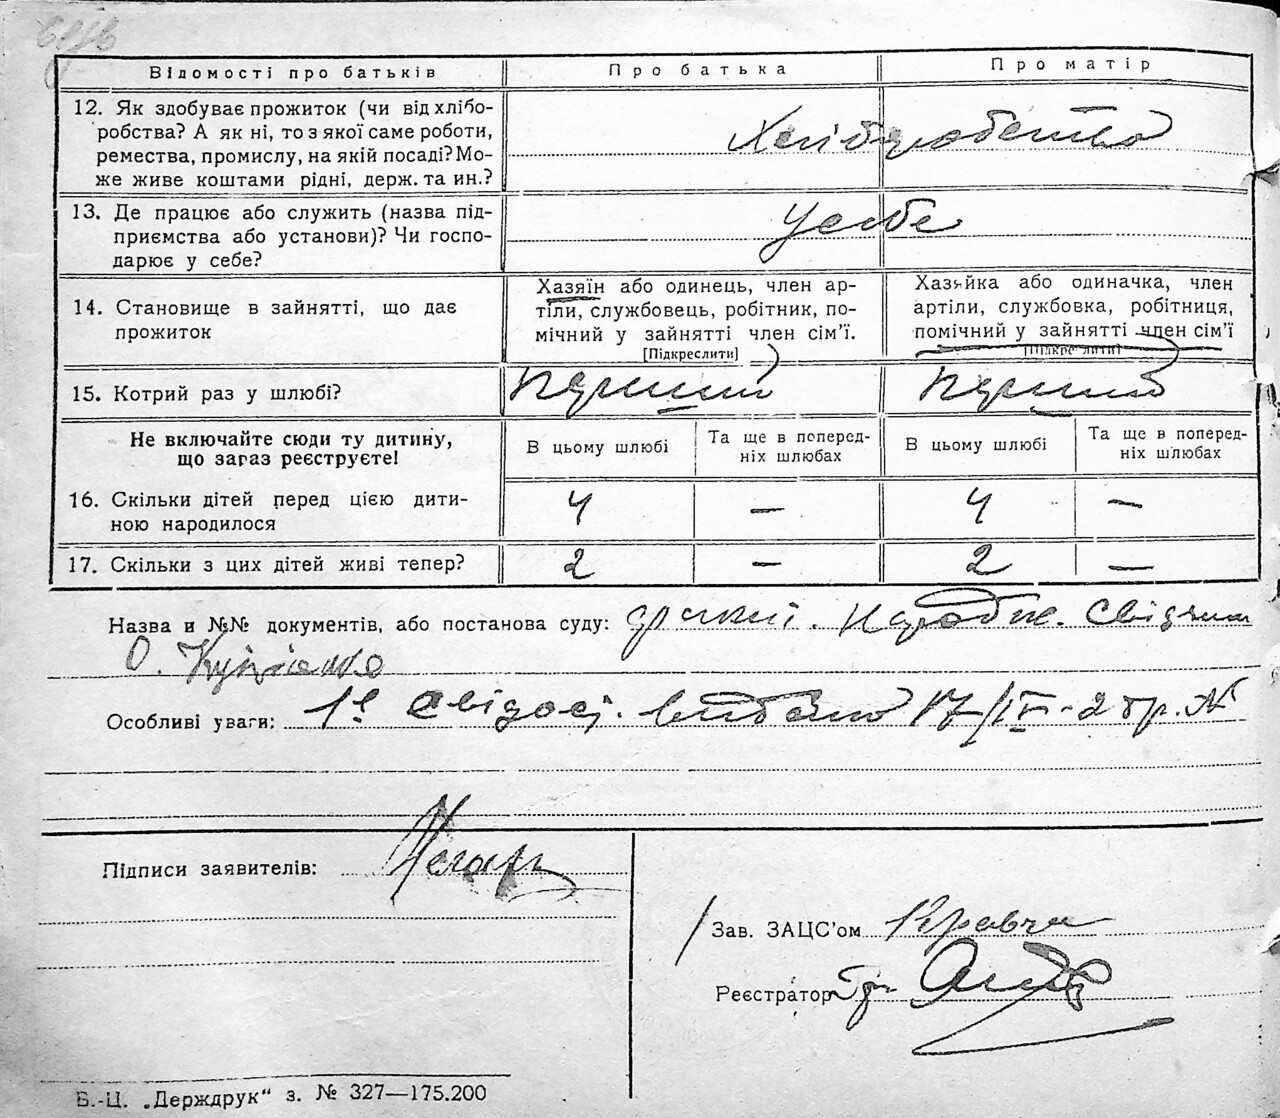 Відомості про батьків
Про батька
Про матір
12. Як здобуває прожиток (чи від хлібо-
робства? А як ні, то з якої саме роботи,
ремества, промислу, на якій посаді? Мо-
же живе коштами рідні, держ. та ин.?
Хліборобство
13. Де працює або служить (назва під-
приємства або установи)? Чи госпо-
дарює у себе?
У себе
14. Становище в зайнятті, що дає
прожиток
Хазяїн або одинець, член ар-
тіли, службовець, робітник, по-
мічний у зайнятті член сім'ї.
[Підкреслити]
Хазяйка або одиначка, член
артіли, службовка, робітниця,
помічний у зайнятті член сім'ї
[Підкреслити]
15. Котрий раз у шлюбі?
Перший
Перший
Не включайте сюди ту дитину,
що загаз реєструєте!
В цьому шлюбі
Та ще в поперед-
ніх шлюбах
В цьому шлюбі
Та ще в поперед-
ніх шлюбах
16. Скільки дітей перед цією дити-
ною народилося
4
—
4
—
17. Скільки з цих дітей живі тепер?
2
—
2
—
Назва и №№ документів, або постанова суду:
Особливі уваги: видано 17/IV-
Підписи заявителів:
Зав. ЗАЦС'ом
Реєстратор
Б.-Ц. „Держдрук“ з. № 327—175.200